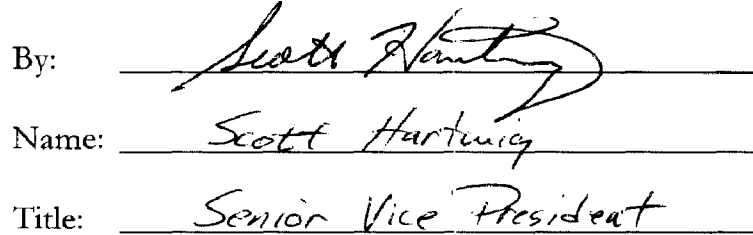 By: Scott Hartwig
Name: Scott Hartwig
Title: Senior Vice President